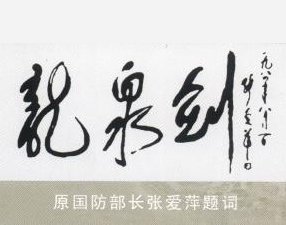 龍泉剑
一九八六年八月一日
张爱萍
原国防部长张爱萍题词